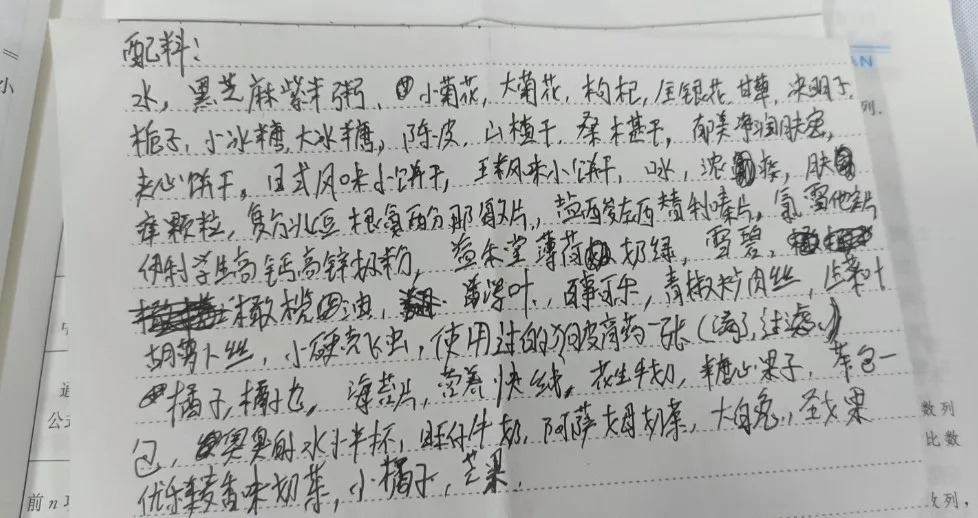 配料：
水，黑芝麻紫米粥、小菊花，大菊花，枸杞，金银花，甘草，决明子，
栀子，小冰糖，大冰糖，陈皮，山楂干，桑椹干，郁美净润肤蜜，
夹心饼干，日式风味小饼干，风味小饼干，口水，肤
痒颗粒，复方氨酚那敏片，盐酸左西替利嗪片，氯雷他定片
伊利学生高钙高锌奶粉，薄荷奶绿，雪碧，
橄榄，叶，百事可乐，青椒炒肉丝，生菜叶
胡萝卜丝，小硬壳飞虫，使用过的狗皮膏药一张（满了，过滤）
橘子，橘子皮，海苔片，营养快线，花生牛奶，糖心果子，茶包一
包，臭臭的水小半杯，旺仔牛奶，阿萨姆奶茶，大白兔，圣女果
优乐美麦香味奶茶，小橘子，芒果，
列．
数列
比数
数列，
前n项
公
小
AN